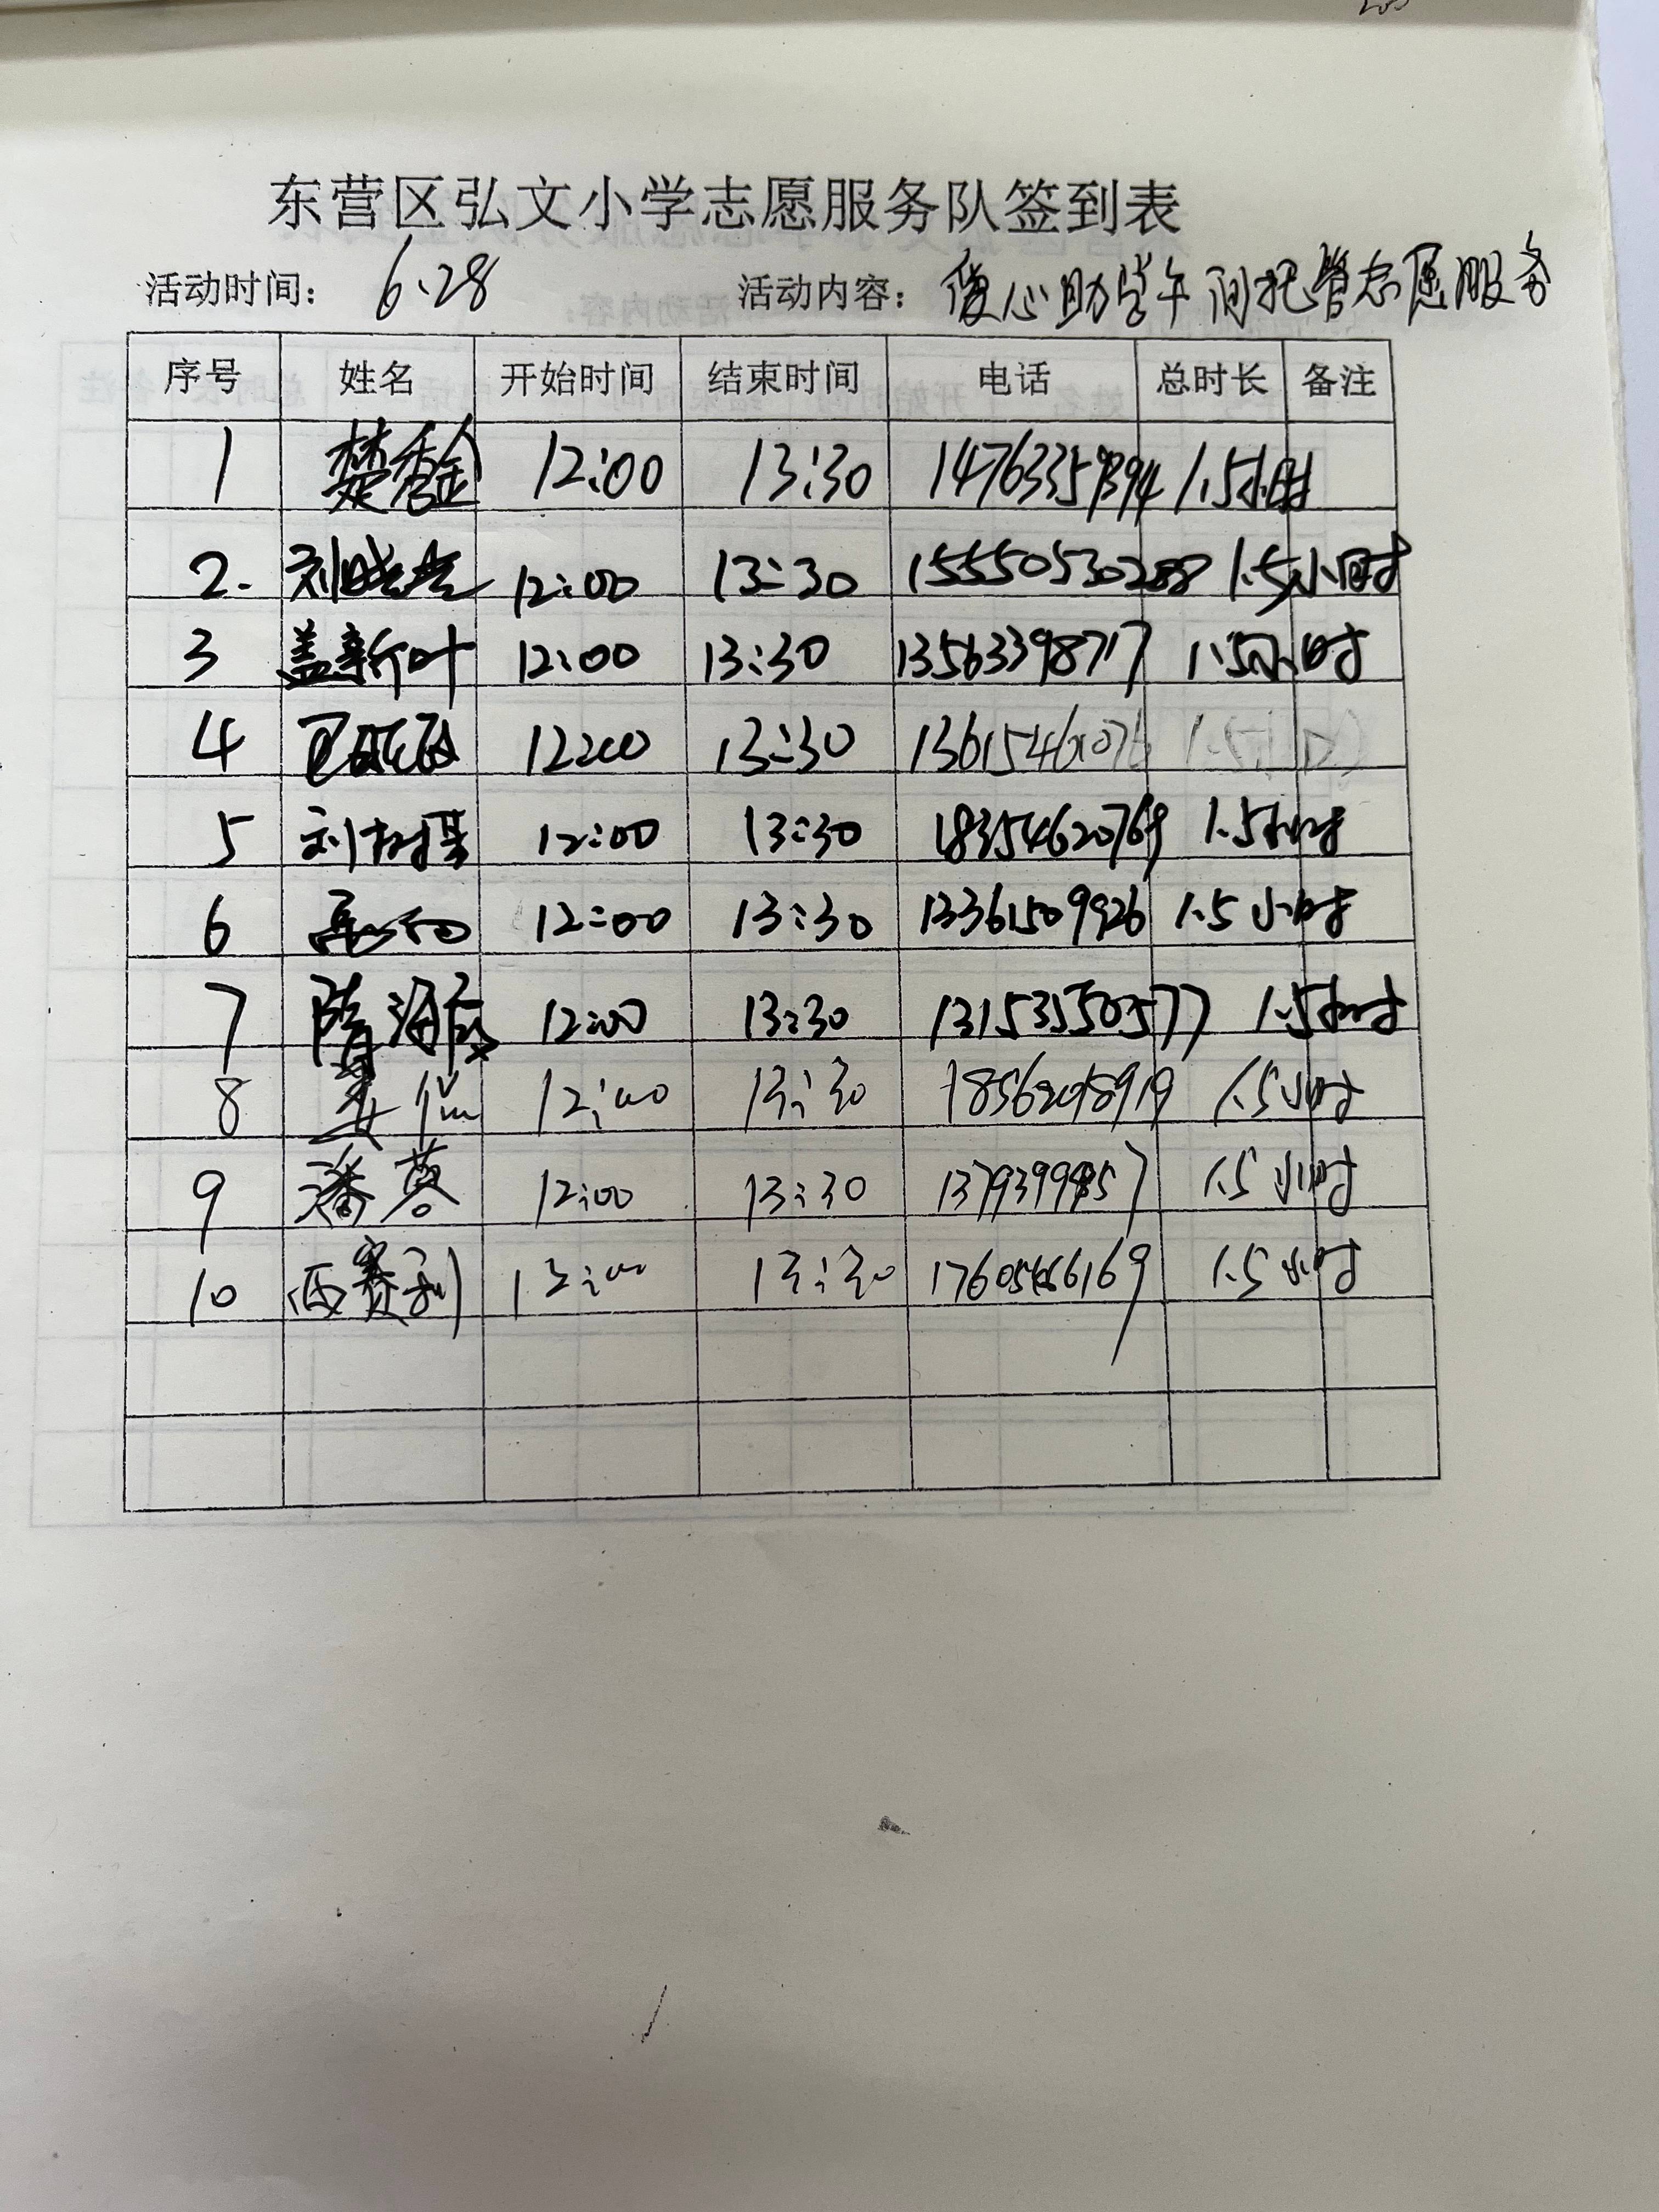 东营区弘文小学志愿服务队签到表
活动时间： 6.28 活动内容： 爱心助学午间托管志愿服务
序号 姓名 开始时间 结束时间 电话 总时长 备注
1 楚秀鑫 12:00 13:30 14763359394 1.5小时
2. 刘晓 12:00 13:30 15550530288 1.5小时
3 盖新叶 12:00 13:30 13563398717 1.5小时
4 12:00 13:30 13615461076 1.5小时
5 刘树果 12:00 13:30 18354620769 1.5小时
6 12:00 13:30 13361509926 1.5小时
7 隋海霞 12:00 13:30 1.5小时
8 姜 12:00 13:30 1.5小时
9 潘蓉 12:00 13:30 1.5小时
10 西赛利 12:00 13:30 1.5小时